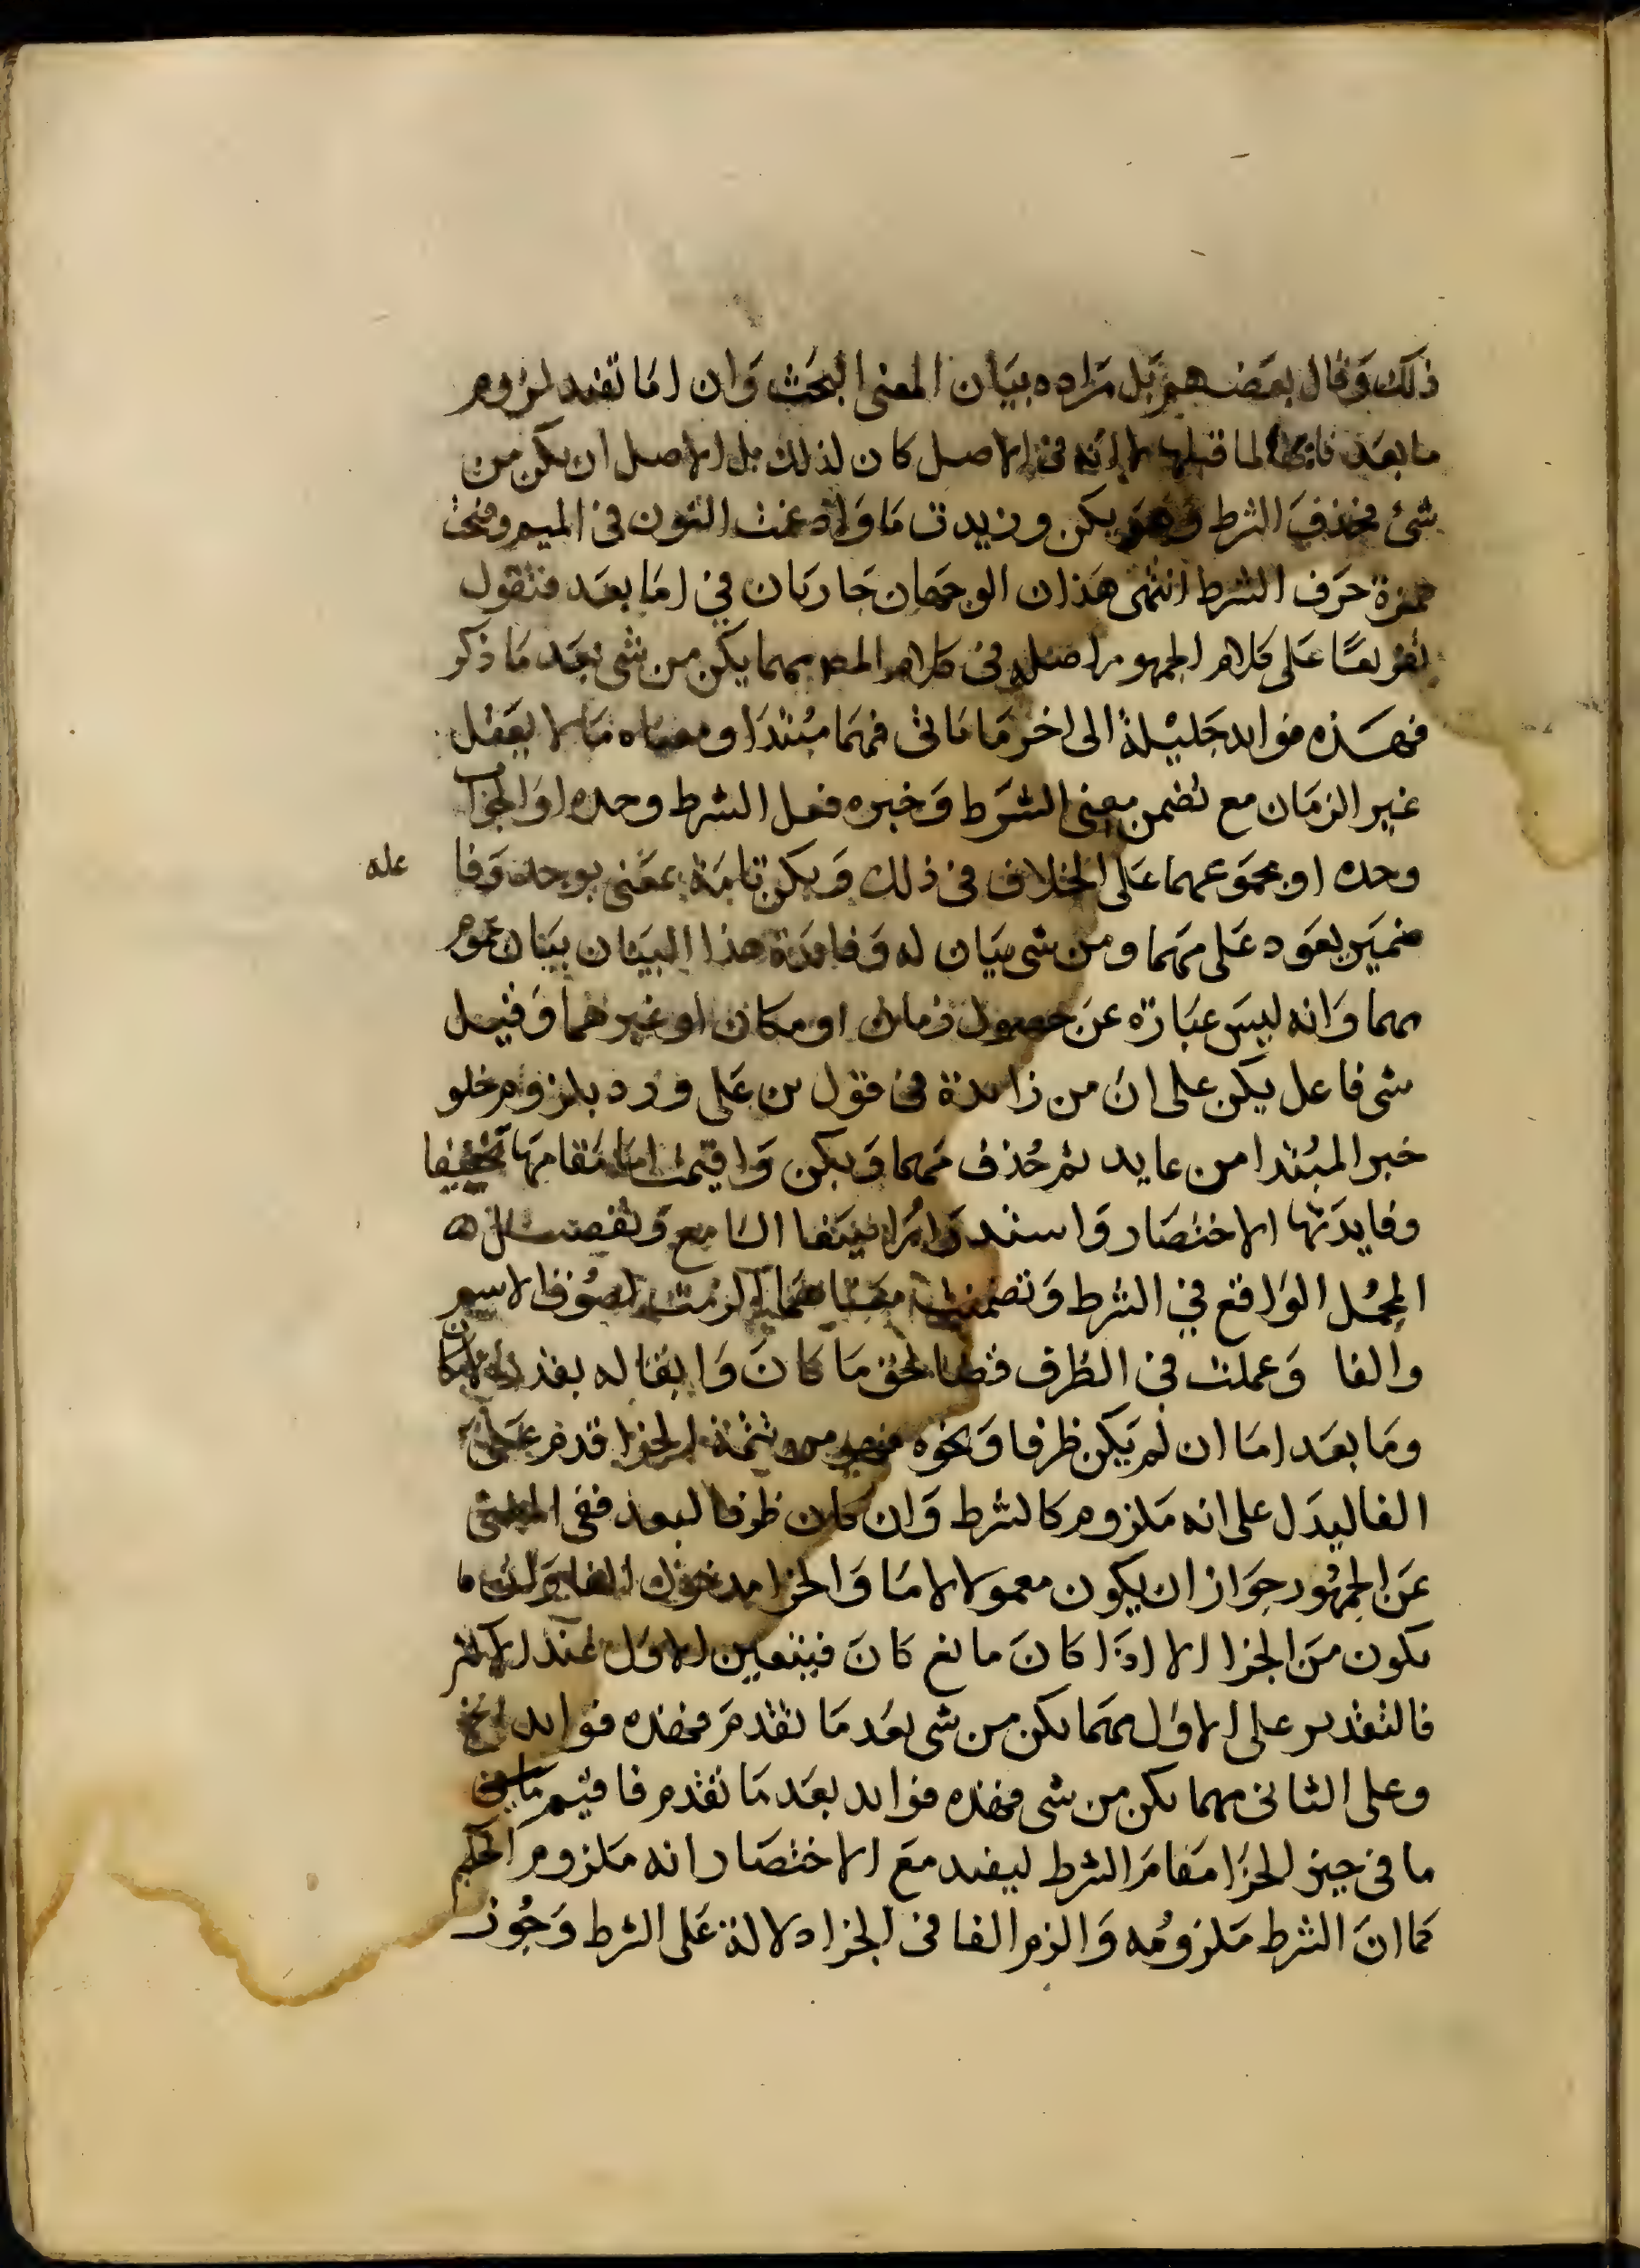 ذلك وقال بعضهم بل مراده بيان المعنى البحت وان اما تفيد لزوم
ما بعد فايها لما قبلها لا انه في الاصل كان لذلك بل الاصل ان يكن من
شئ فحذف الشرط وهو يكن وزيدت ما وادغمت النون في الميم وفتحت
همزة حرف الشرط انتهى هذان الوجهان جاريان في اما بعد فتقول
تفريعًا على كلام الجمهور اصله في كلام المص مهما يكن من شى بعد ما ذكر
فهذه فوايد جليلة الى اخر ما ياتى فمهما مبتدا ومعناه ما لا يعقل
غير الزمان مع تضمن معنى الشرط وخبره فعل الشرط وحده او الجواب
وحده او مجموعهما على الخلاف في ذلك ويكن تامة بمعنى يوجد وفا عله
ضمير يعود على مهما ومن شى بيان له وفايدة هذا البيان بيان عموم
مهما وانه ليس عبارة عن حصول زمان او مكان او غيرهما وقيل
شى فاعل يكن على ان من زايدة في قول من على ورد بلزوم خلو
خبر المبتدا من عايد ثم حذف مهما ويكن واقيمت اما مقامها تخفيفا
وفايدتها الاختصار واستد السامع وتفصيل
المجمل الواقع في الشرط وتضمنت معناهما لزمت لصوق الاسم
والفا وعملت في الظرف قضا لحق ما كان وابقا له بقدر الامكان
وما بعد اما ان لم يكن ظرفا ونحوه فهو من تتمة الجزا قدم على
الفا ليدل على انه ملزوم كالشرط وان كان ظرفا لبعد ففى
عن الجمهور جواز ان يكون معمولا لاما والجزا مدخول الفا وان
يكون من الجزا الا اذا كان مانع كان فيتعين الاول عند الاكثر
فالتقدير على الاول مهما يكن من شى بعد ما تقدم فهذه فوايد الخ
وعلى الثانى مهما يكن من شى فهذه فوايد بعد ما تقدم فاقيم
ما في حيز الجزا مقام الشرط ليفيد مع الاختصار انه ملزوم الحكم
كما ان الشرط ملزومه والزم الفا في الجزا دلالة على الشرط وجوز